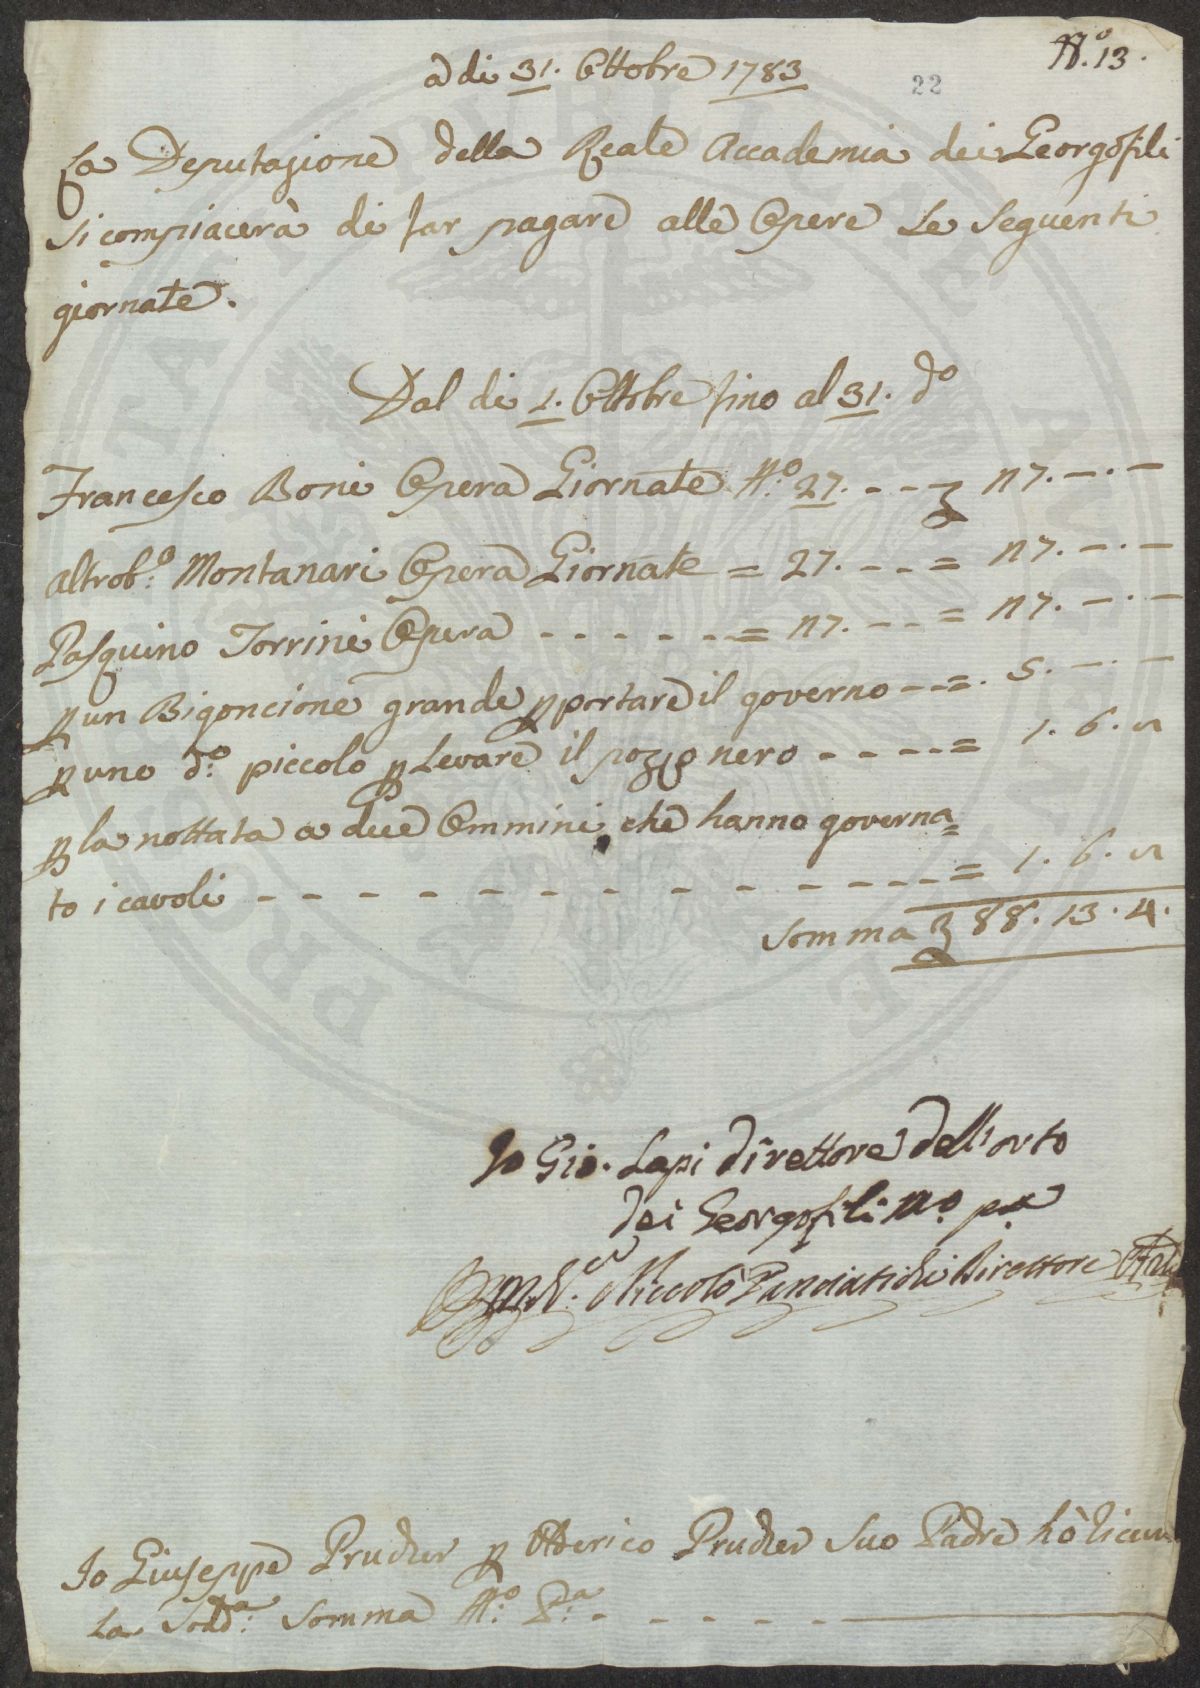 N.º 13.
22
a di 31. Ottobre 1783
La Deputazione della Reale Accademia dei Georgofili
si compiacerà di far pagare alle Opere Le Seguenti
giornate.
Dal di 1. Ottobre fino al 31. dº
Francesco Boni Opera Giornate N.º 27. - - £ 27. -. -
altrob:º Montanari Opera Giornate = 27. - - = 27. -. -
Pasquino Torrini Opera - - - - - = 27. - - = 27. -. -
p un Bigoncione grande p portare il governo - - = . 5. -. -
p uno d:º piccolo p Levare il pozzo nero - - - - = 1. 6. 8
p la nottata a due Ommini che hanno governa=
to i cavoli - - - - - - - - - - - - - = 1. 6. 8
Somma £ 88. 13. 4.
Io Gio. Lapi direttore dell'orto
dei Georgofili mº pa
Niccolò Panciatichi Direttore
Io Giuseppe Prucher p Oderico Prucher Suo Padre hò ricevu
La Sodd:ª Somma Mº Pª - - - - -
PROSPERITATI PUBLICAE AUGENDAE